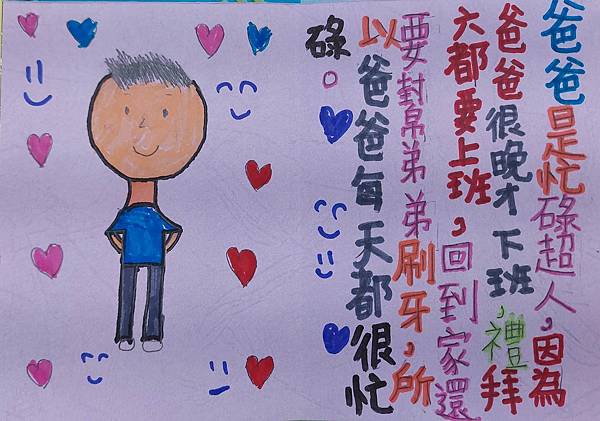 爸爸是忙碌超人，因為
爸爸很晚才下班，禮拜
六都要上班，回到家還
要對帛弟弟刷牙，所
以爸爸每天都很忙
碌。